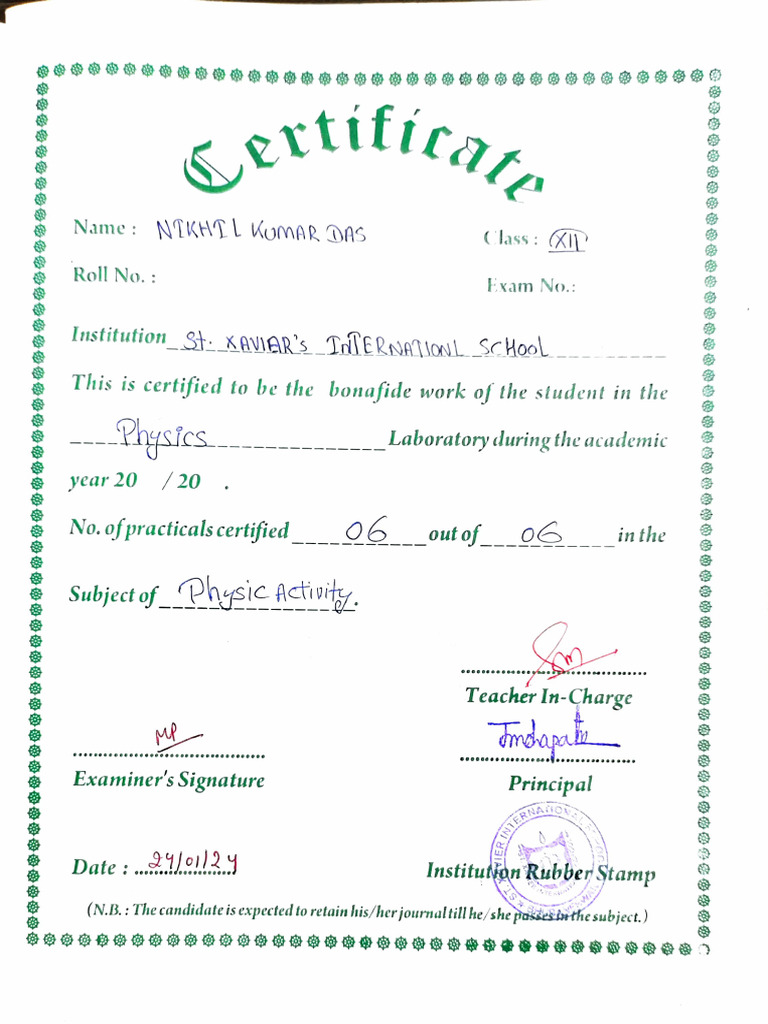 Certificate
Name : NIKHIL KUMAR DAS Class : XII
Roll No. : Exam No.:
Institution St. XAVIAR's INTERNATIONL SCHOOL
This is certified to be the bonafide work of the student in the
Physics Laboratory during the academic
year 20 / 20 .
No. of practicals certified 06 out of 06 in the
Subject of Physic Activity.
Teacher In-Charge
MP
Examiner's Signature
Principal
ST. XAVIER INTERNATIONAL
Date : 24/01/24
Institution Rubber Stamp
(N.B. : The candidate is expected to retain his/her journal till he/she passes in the subject.)